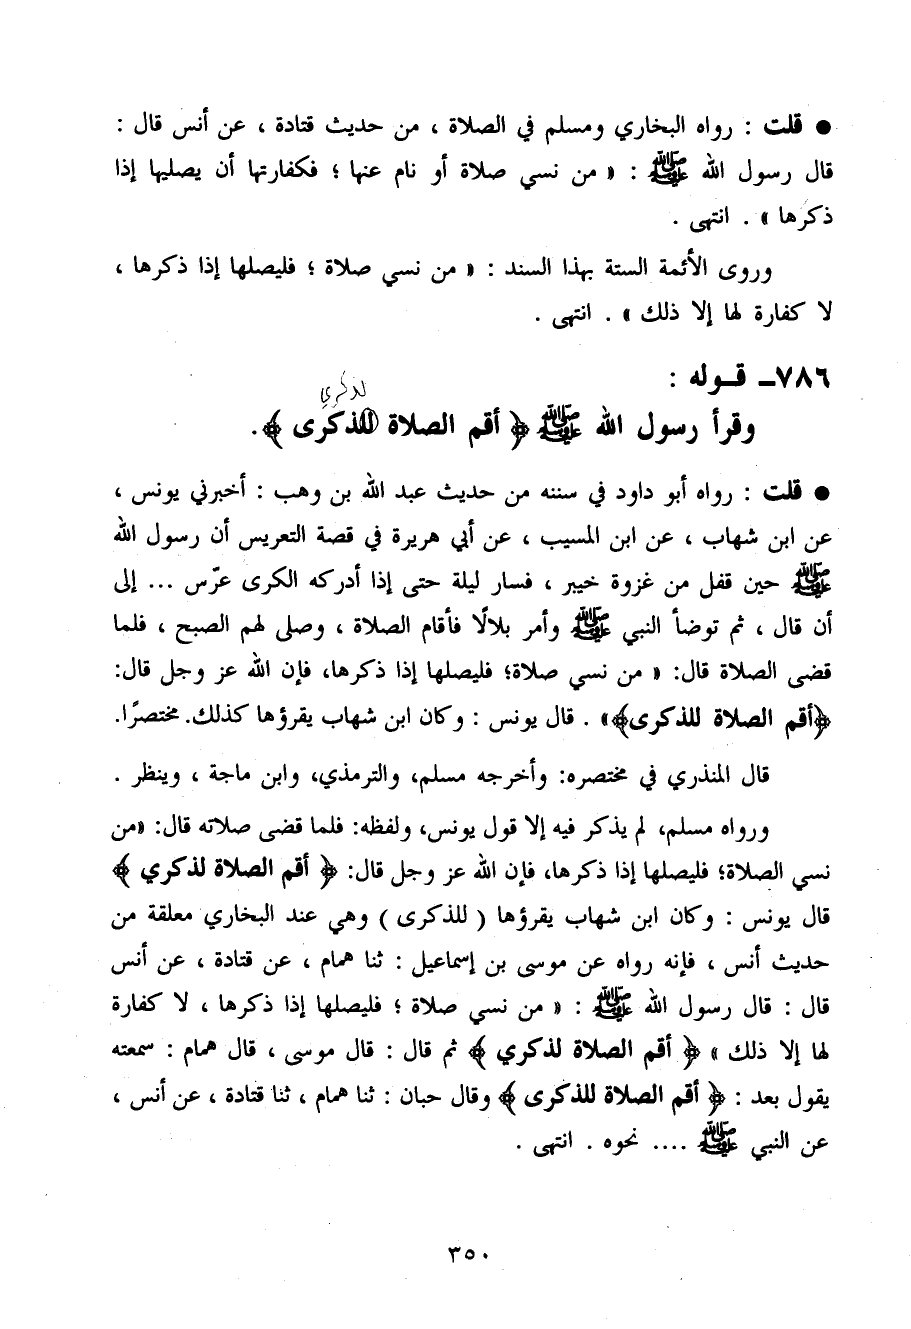 ● قلت : رواه البخاري ومسلم في الصلاة ، من حديث قتادة ، عن أنس قال :
قال رسول الله ﷺ : « من نسي صلاة أو نام عنها ؛ فكفارتها أن يصليها إذا
ذكرها » . انتهى .
وروى الأئمة الستة بهذا السند : « من نسي صلاة ؛ فليصلها إذا ذكرها ،
لا كفارة لها إلا ذلك » . انتهى .
٧٨٦ـ قـوله :
لذكري
وقرأ رسول الله ﷺ ﴿ أقم الصلاة للذكرى ﴾.
● قلت : رواه أبو داود في سننه من حديث عبد الله بن وهب : أخبرني يونس ،
عن ابن شهاب ، عن ابن المسيب ، عن أبي هريرة في قصة التعريس أن رسول الله
ﷺ حين قفل من غزوة خيبر ، فسار ليلة حتى إذا أدركه الكرى عرّس ... إلى
أن قال ، ثم توضأ النبي ﷺ وأمر بلالًا فأقام الصلاة ، وصلى لهم الصبح ، فلما
قضى الصلاة قال: « من نسي صلاة؛ فليصلها إذا ذكرها، فإن الله عز وجل قال:
﴿أقم الصلاة للذكرى﴾» . قال يونس : وكان ابن شهاب يقرؤها كذلك. مختصرًا.
قال المنذري في مختصره: وأخرجه مسلم، والترمذي، وابن ماجة ، وينظر .
ورواه مسلم، لم يذكر فيه إلا قول يونس، ولفظه: فلما قضى صلاته قال: «من
نسي الصلاة؛ فليصلها إذا ذكرها، فإن الله عز وجل قال: ﴿ أقم الصلاة لذكري ﴾
قال يونس : وكان ابن شهاب يقرؤها ( للذكرى ) وهي عند البخاري معلقة من
حديث أنس ، فإنه رواه عن موسى بن إسماعيل : ثنا همام ، عن قتادة ، عن أنس
قال : قال رسول الله ﷺ : « من نسي صلاة ؛ فليصلها إذا ذكرها ، لا كفارة
لها إلا ذلك » ﴿ أقم الصلاة لذكري ﴾ ثم قال : قال موسى ، قال همام : سمعته
يقول بعد : ﴿ أقم الصلاة للذكرى ﴾ وقال حبان : ثنا همام ، ثنا قتادة ، عن أنس ،
عن النبي ﷺ .... نحوه . انتهى .
٣٥٠